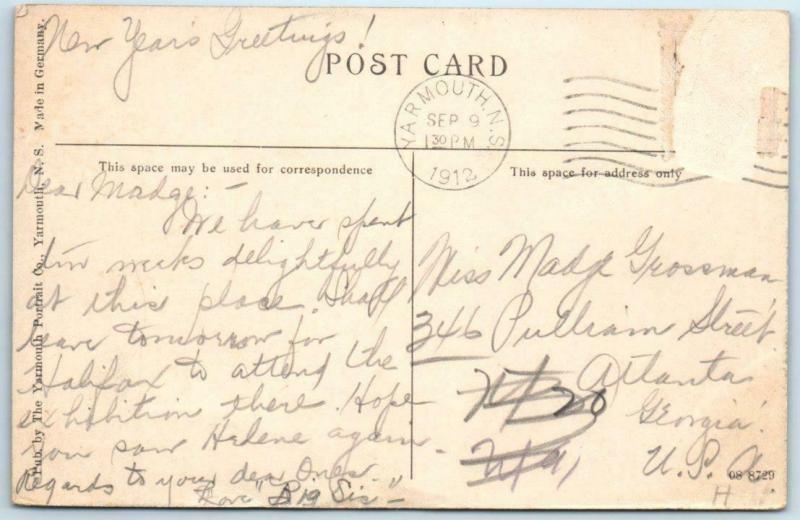 New Year's Greetings!
POST CARD
YARMOUTH, N.S.
SEP 9
1 30 PM
1912
This space may be used for correspondence
This space for address only
Dear Madge: -
We have spent
weeks delightfully
at this place. Shall
leave tomorrow for
Halifax to attend the
exhibition there. Hope
you saw Helene again -
Regards to your dear Ones
Love "Big Sis" -
Miss Madge Grossman
346 Pulliam Street
Atlanta
Georgia.
U.S.A.
08 8729
H
Pub. by The Yarmouth Portrait Co., Yarmouth, N. S. Made in Germany.